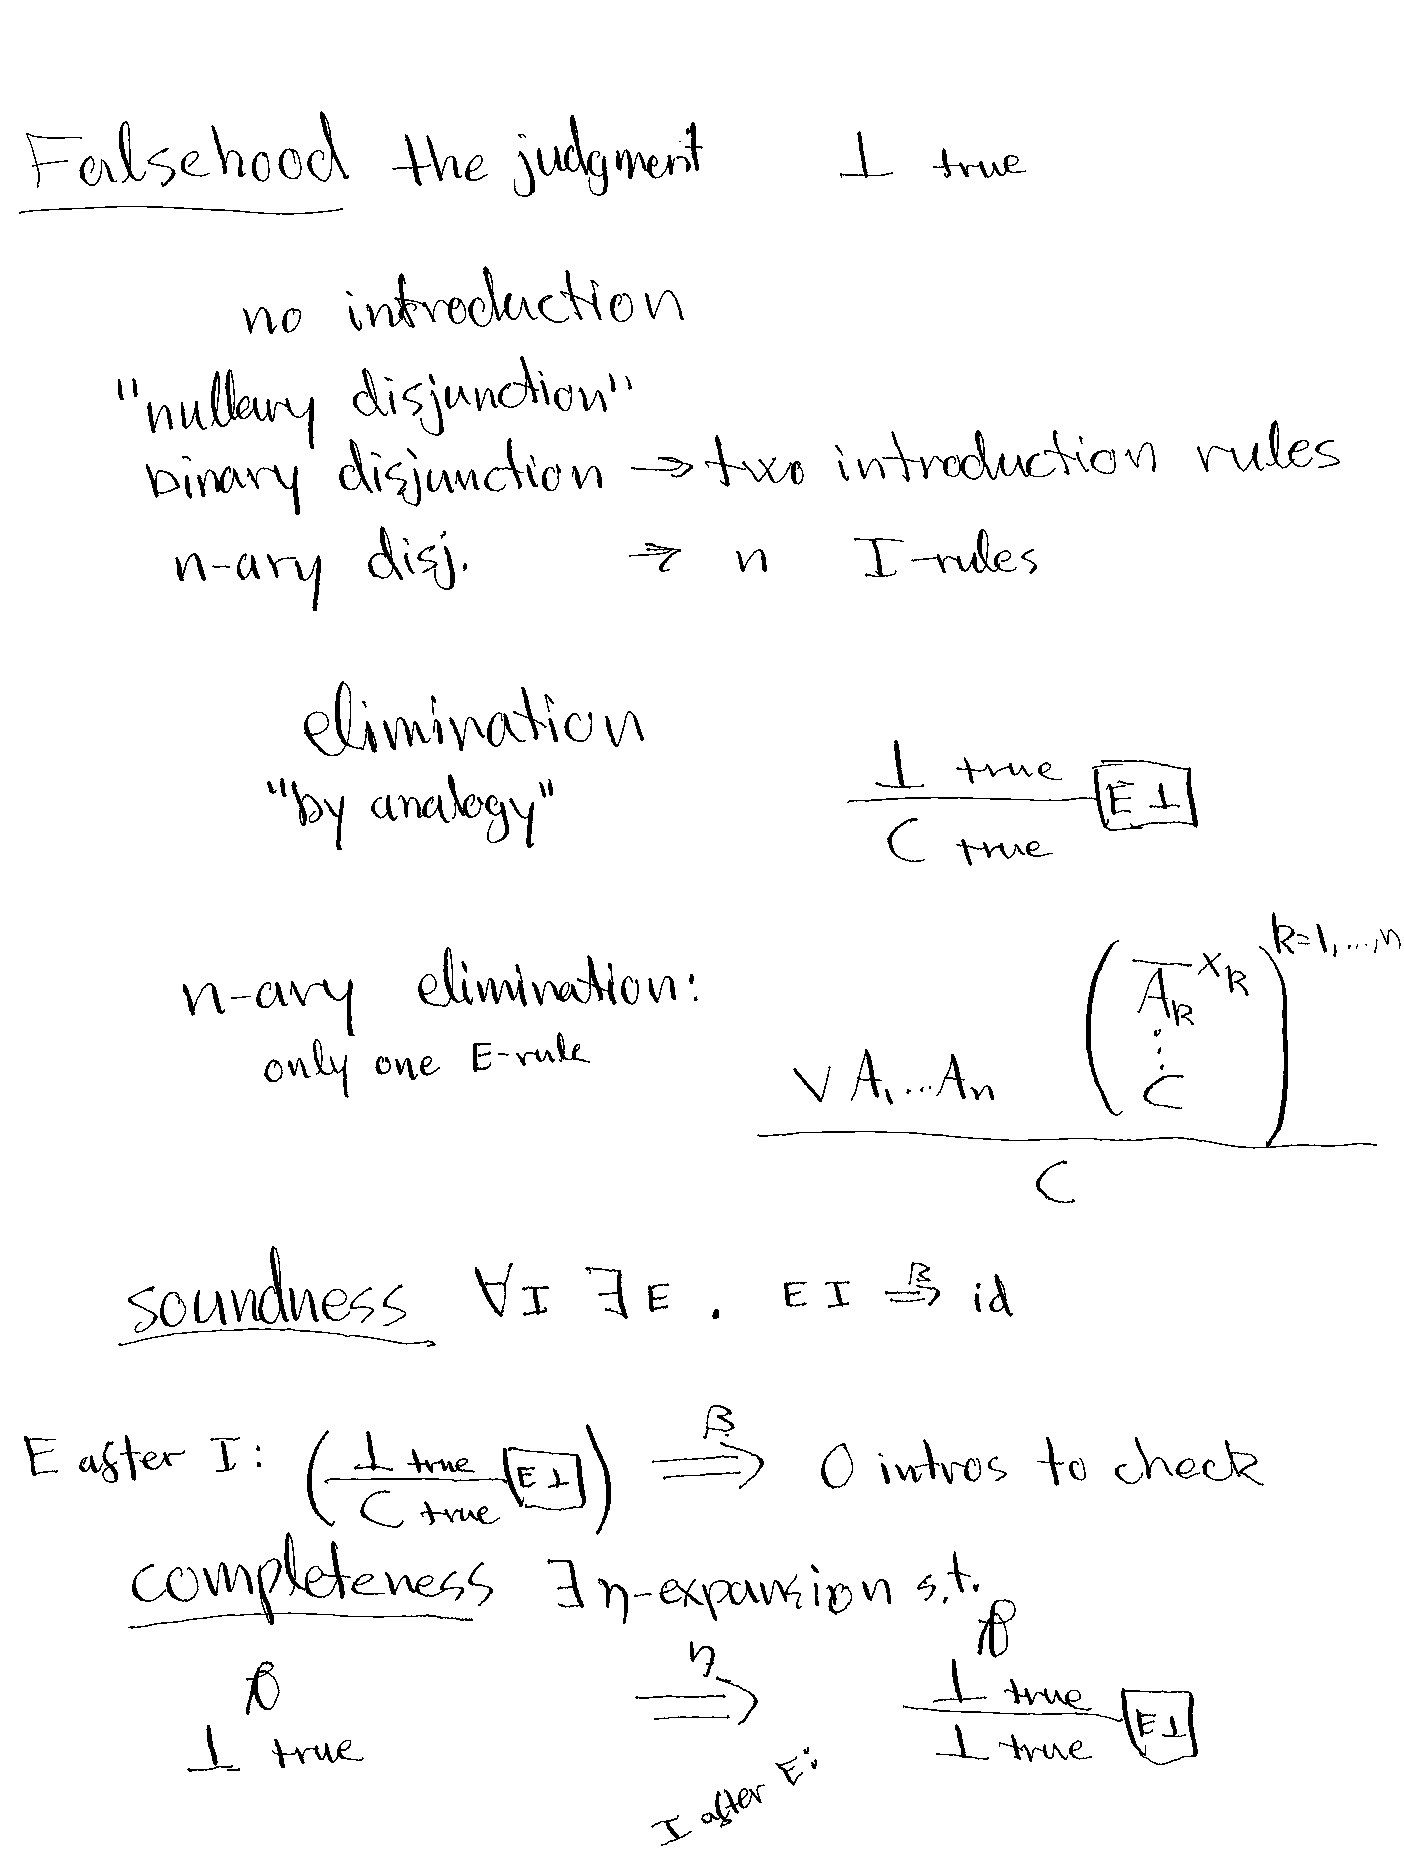 Falsehood the judgment ⊥ true
no introduction
"nullary disjunction"
binary disjunction → two introduction rules
n-ary disj. → n I-rules
elimination
"by analogy"
⊥ true
E⊥
C true
n-ary elimination:
only one E-rule
k=1,...,n
A_k x_k
⋮
C
∨ A₁...Aₙ
C
soundness ∀I ∃E. E I ⇒β id
E after I: ( ⊥ true / C true E⊥ ) ⇒β 0 intros to check
completeness ∃ η-expansion s.t.
D ⇒η D
⊥ true
⊥ true
⊥ true E⊥
I after E: